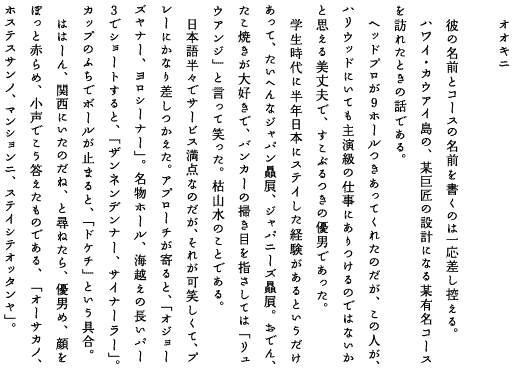 オオキニ
彼の名前とコースの名前を書くのは一応差し控える。
ハワイ・カウアイ島の、某巨匠の設計になる某有名コース
を訪れたときの話である。
ヘッドプロが9ホールつきあってくれたのだが、この人が、
ハリウッドにいても主演級の仕事にありつけるのではないか
と思える美丈夫で、すこぶるつきの優男であった。
学生時代に半年日本にステイした経験があるというだけ
あって、たいへんなジャパン贔屓、ジャパニーズ贔屓。おでん、
たこ焼きが大好きで、バンカーの掃き目を指さしては「リュ
ウアンジ」と言って笑った。枯山水のことである。
日本語半々でサービス満点なのだが、それが可笑しくて、プ
レーにかなり差しつかえた。アプローチが寄ると、「オジョー
ズヤナー、ヨロシーナー」。名物ホール、海越えの長いパー
3でショートすると、「ザンネンデンナー、サイナーラー」。
カップのふちでボールが止まると、「ドケチ」という具合。
ははーん、関西にいたのだね、と尋ねたら、優男め、顔を
ぽっと赤らめ、小声でこう答えたものである、「オーサカノ、
ホステスサンノ、マンションニ、ステイシテオッタンヤ」。